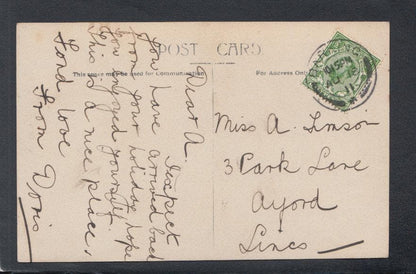 POST CARD
This space may be used for Communication
For Address Only
Dear A.
I xpect
you have arrived back
from your holiday hope
you enjoyed yourself.
This is a nice place.
Fond love
From Doris
Miss A. Limson
3 Park Lane
Ayford
Lincs